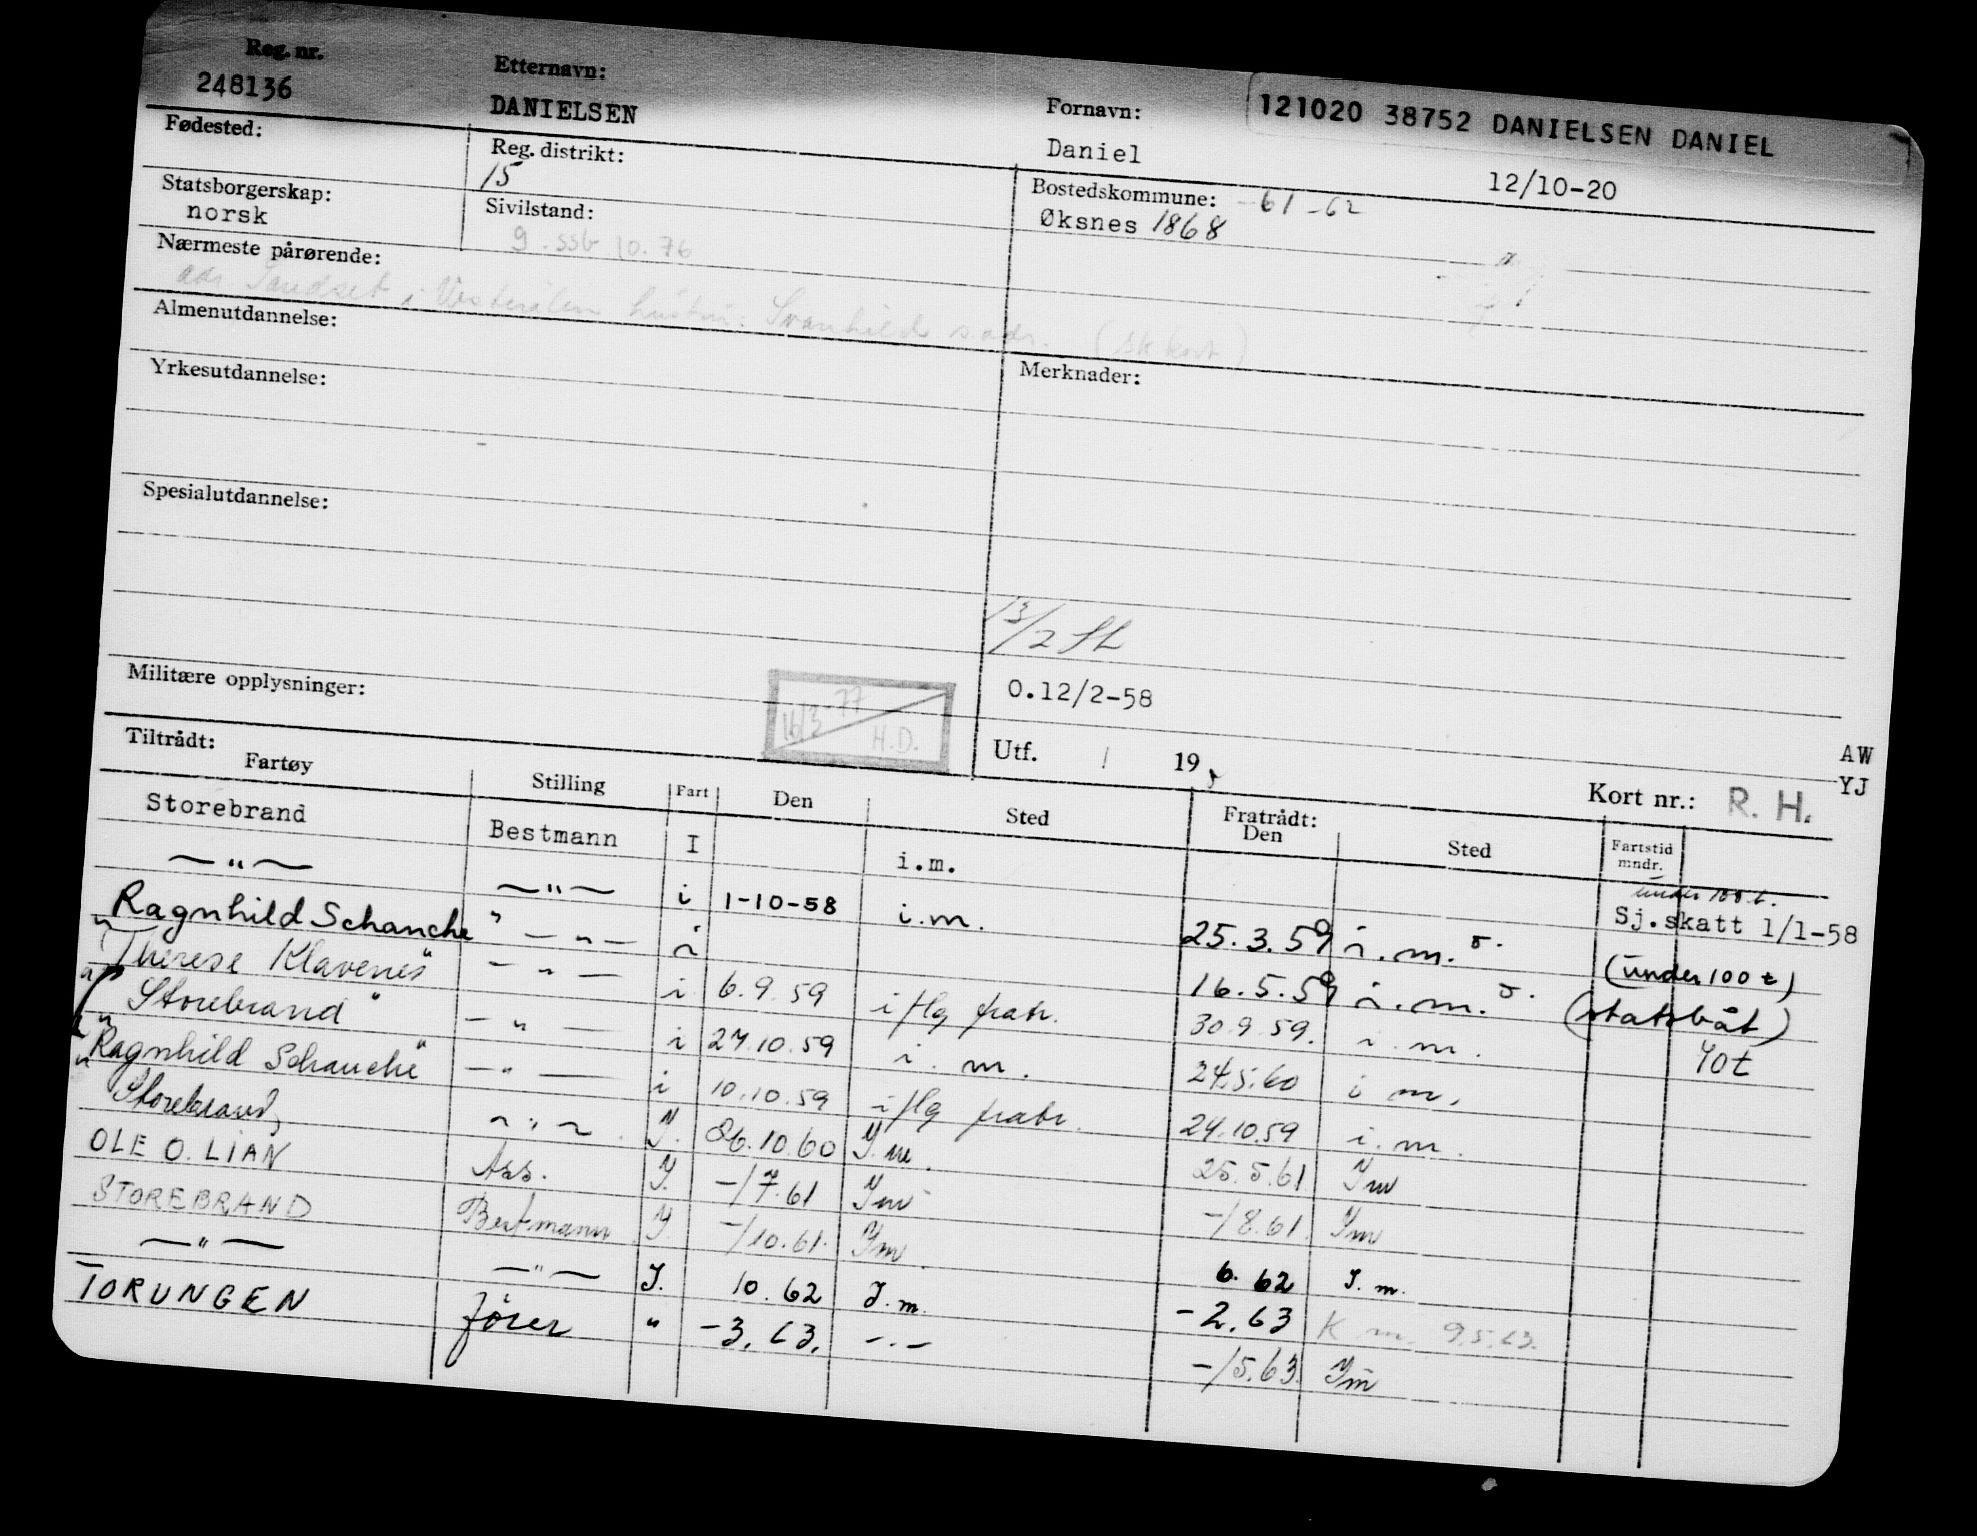 Reg. nr. Etternavn: Fornavn: 121020 38752 DANIELSEN DANIEL
248136 DANIELSEN Daniel 12/10-20
Fødested: Reg. distrikt: Bostedskommune: -61-62
15 Øksnes 1868
Statsborgerskap: Sivilstand:
norsk g. ssb 10.76
Nærmeste pårørende:
adr. Sandset i Vesterålen hustru: Svanhild s.adr. (sk kort)
Almenutdannelse:
Yrkesutdannelse: Merknader:
Spesialutdannelse:
13/2
Militære opplysninger: 0.12/2-58
16/3-77 H.D.
Utf. / 19 AW
Tiltrådt: Kort nr.: R. H. YJ
Fartøy Stilling Fart Den Sted Fratrådt: Den Sted Fartstid mndr.
Storebrand Bestmann I i.m. under 100 t. Sj.skatt 1/1-58
—"— —"— i 1-10-58 i.m. 25.3.59 i.m.
"Ragnhild Schanche" —"— i 16.5.59 i.m. (under 100 t)
"Therese Klavenes" —"— i 6.9.59 i flg fratr. 30.9.59. i.m. (statsbåt)
"Storebrand" —"— i 27.10.59 i.m. 24.5.60 i m. 40t
"Ragnhild Schanche" —"— i 10.10.59 i flg fratr. 24.10.59 i.m.
Storebrand, —"— I. 26.10.60 I.m. 25.5.61 Im
OLE O. LIAN Ass. I. -/7.61 Im -/8.61. Im
STOREBRAND Bestmann I. -/10.61. Im. 6.62 I.m.
—"— —"— I. 10.62 I.m. -2.63 K m. 9.5.63.
TORUNGEN fører " -3.63. -.- -/5.63. Im